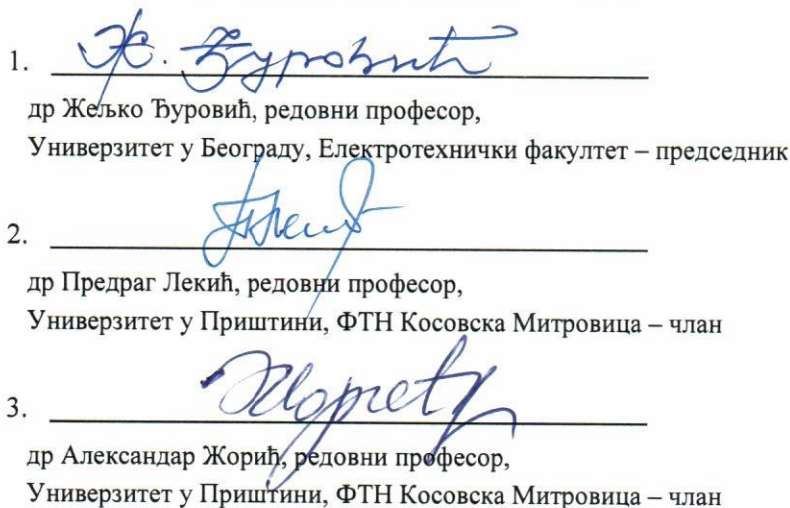 1. Ж. Ђуровић
др Жељко Ђуровић, редовни професор,
Универзитет у Београду, Електротехнички факултет – председник
2.
др Предраг Лекић, редовни професор,
Универзитет у Приштини, ФТН Косовска Митровица – члан
3.
др Александар Жорић, редовни професор,
Универзитет у Приштини, ФТН Косовска Митровица – члан